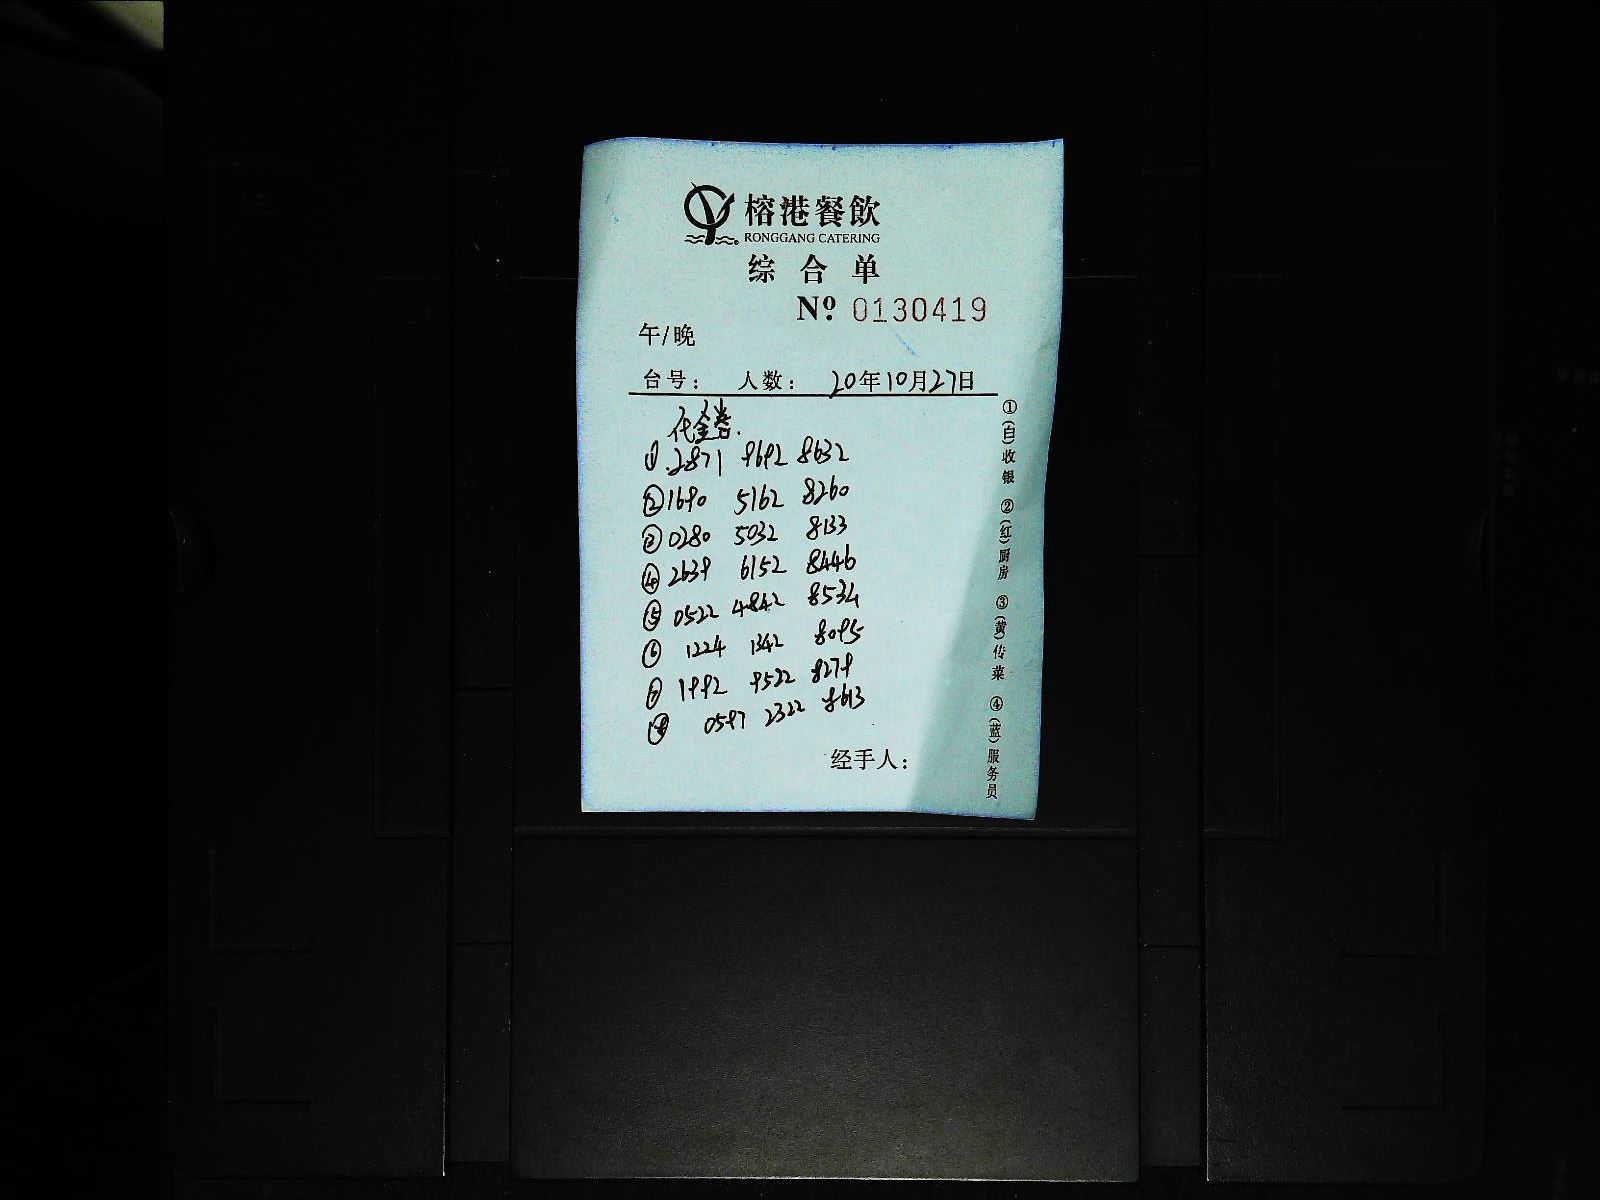 榕港餐飲
RONGGANG CATERING
综合单
Nº 0130419
午/晚
台号： 人数： 20年10月27日
代金券.
①.2871 9692 8632
②1690 5162 8260
③0280 5032 8133
④2639 6152 8446
⑤0522 4842 8534
⑥ 1224 1342 8095
⑦ 1992 9522 8279
⑧ 0597 2322 8613
经手人：
①(白)收银 ②(红)厨房 ③(黄)传菜 ④(蓝)服务员